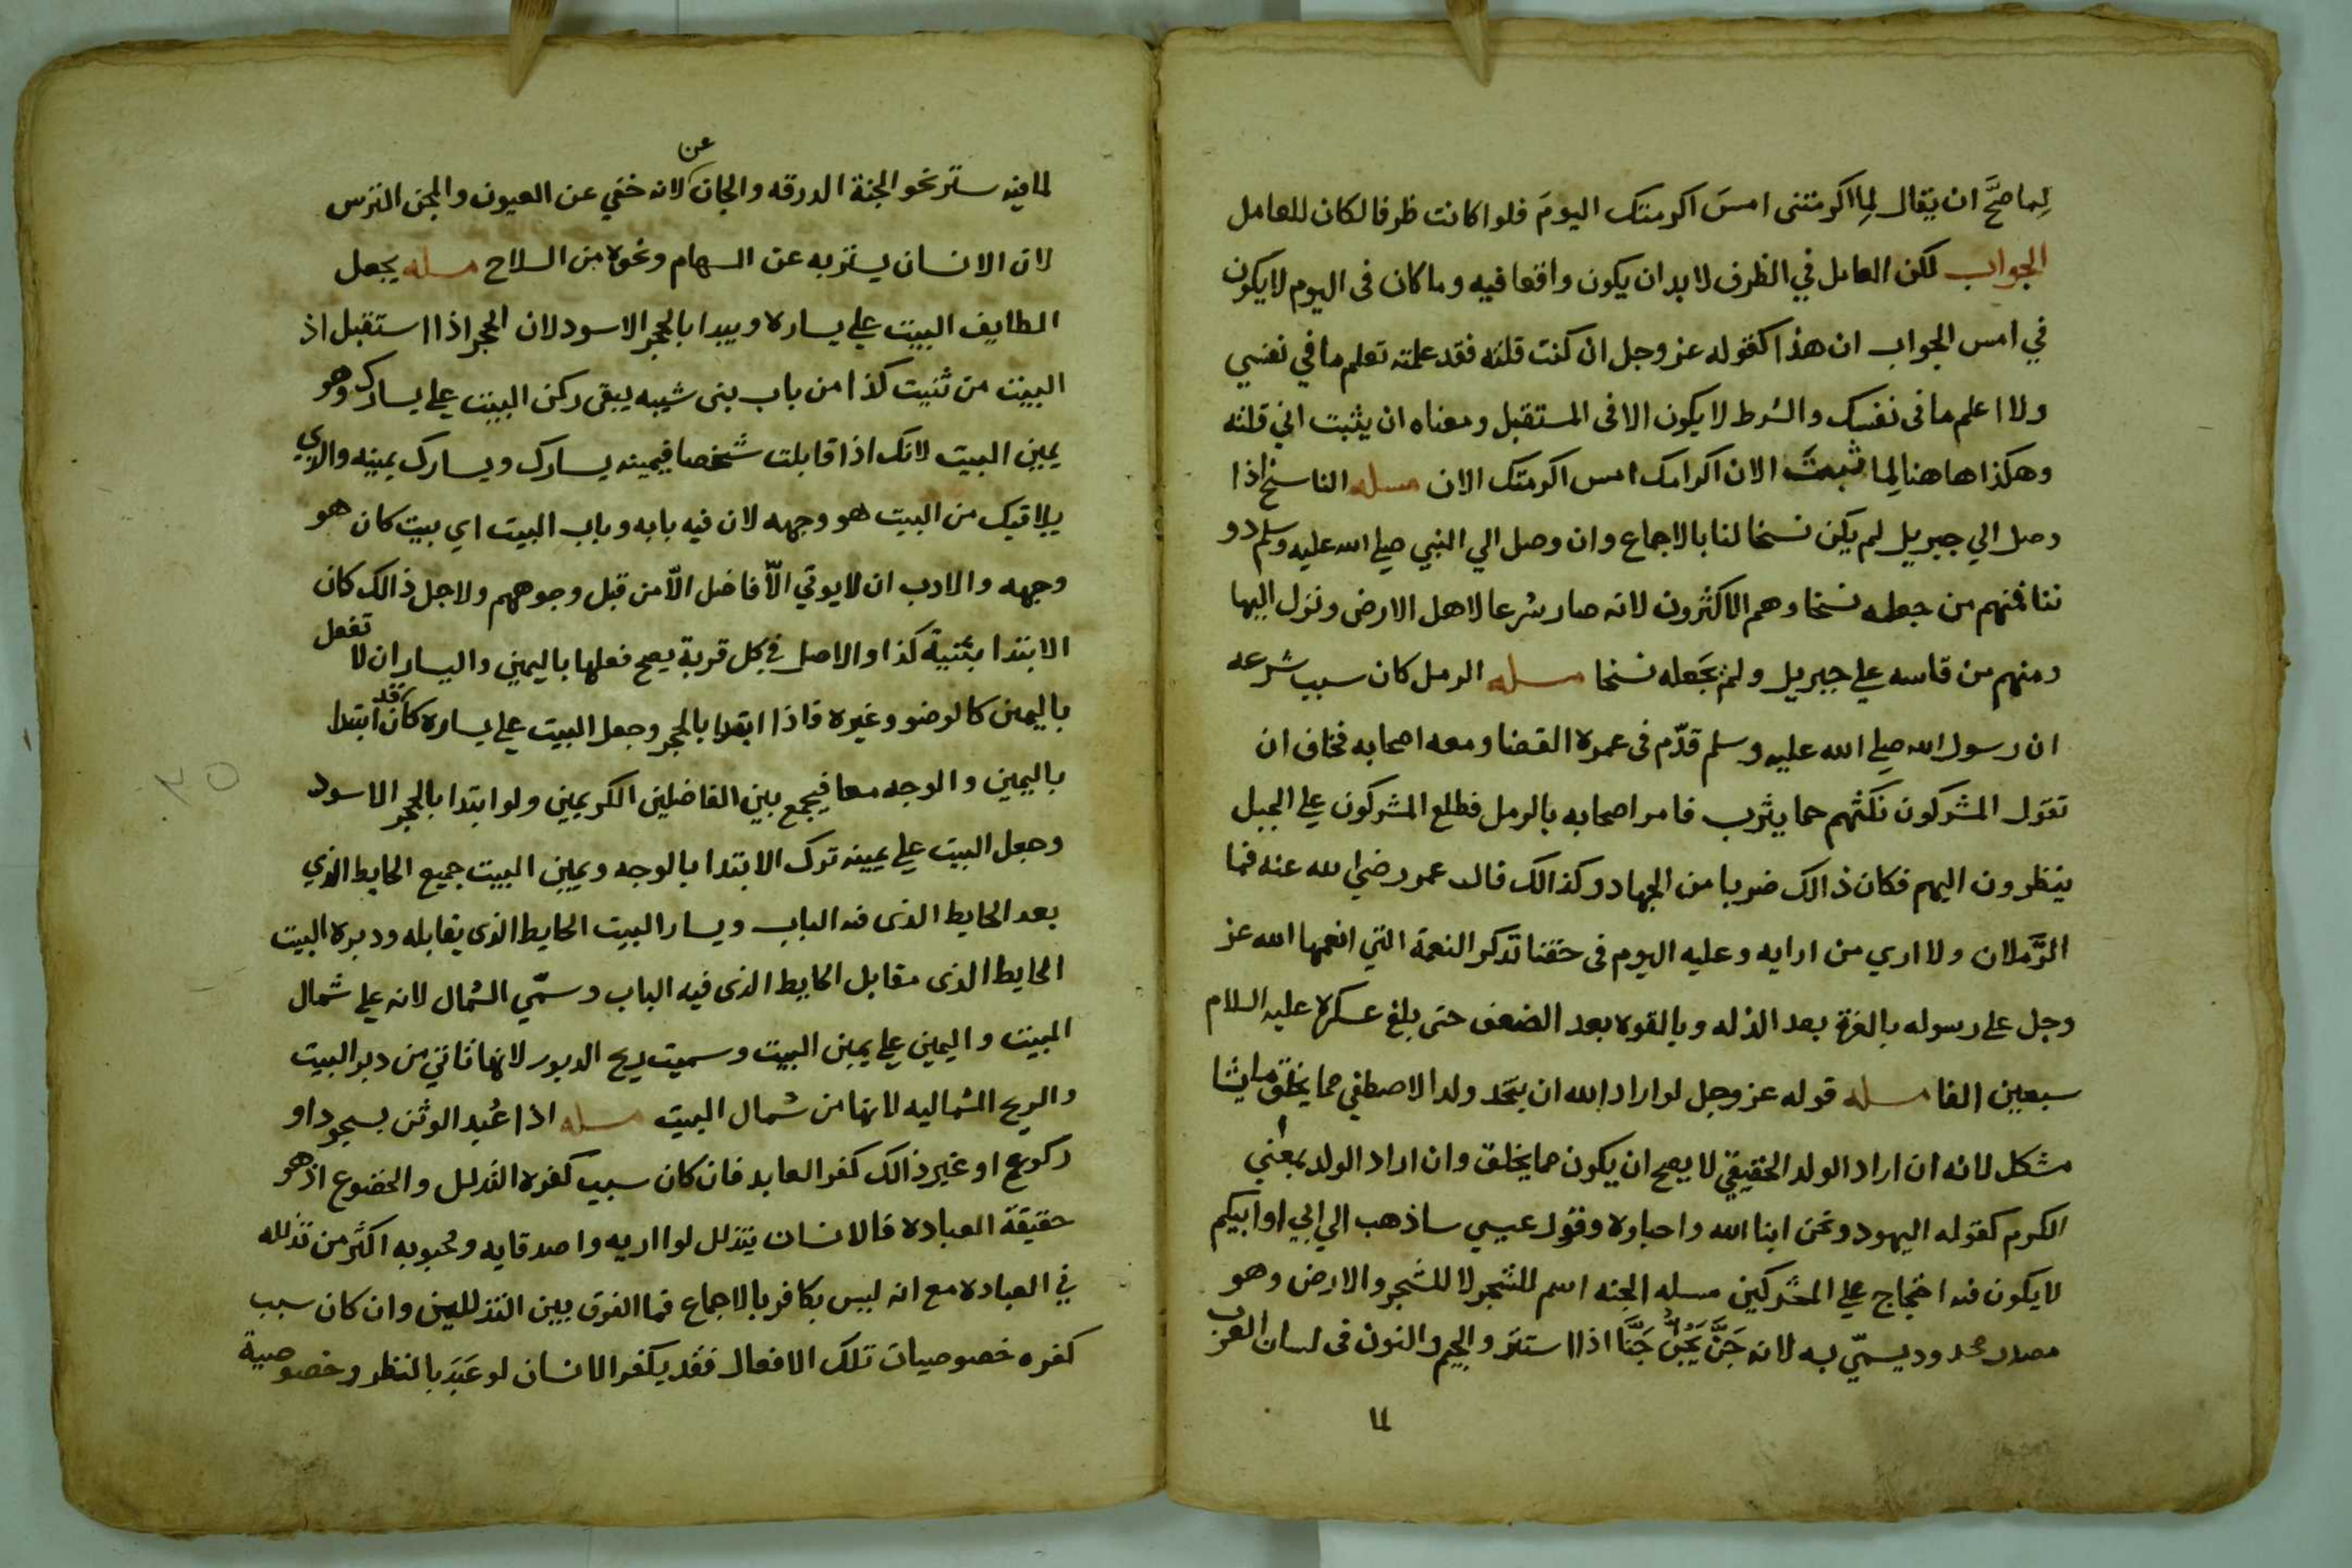 لِما صحَّ ان يقال لِما اكرمتنى امسَ اكرمتك اليومَ فلو كانت ظرفا لكان للعامل
الجواب لكن العامل في الظرف لابد ان يكون واقعا فيه وما كان فى اليوم لايكون
في امس الجواب ان هذا كقوله عز وجل ان كنت قلته فقد علمته تعلم ما في نفسي
ولا اعلم ما فى نفسك والشرط لا يكون الا فى المستقبل ومعناه ان يثبت اني قلته
وهكذا هاهنا لِما ثبتَ الان اكرامك امس اكرمتك الان مسله الناسخ اذا
وصل الي جبريل لم يكن نسخا لنا بالاجماع وان وصل الي النبي صلي الله عليه وسلم دو
ننا فمنهم من جعله نسخا وهم الاكثرون لانه صار شرعا لاهل الارض ونزل اليها
ومنهم من قاسه علي جبريل ولم يجَعله نسخا مسله الرمل كان سبب شرعه
ان رسول الله صلي الله عليه وسلم قدّم فى عمرة القضا ومعه اصحابه فخاف ان
تقول المشركون نكثهم حما يثرب فامر اصحابه بالرمل فطلع المشركون علي الجبل
ينظرون اليهم فكان ذالك ضربا من الجهاد وكذالك قال عمر رضي الله عنه فما
الرَّملان ولا اري من ارايه وعليه اليوم فى حقنا تذكر النعمة التي انعمها الله عز
وجل على رسوله بالعزة بعد الذله وبالقوة بعد الضعف حتى بلغ عسكره عليه السلام
سبعين الفا مسله قوله عز وجل لو اراد الله ان يتخد ولدا لاصطفي مما يخلق ما يشا
مشكل لانه ان اراد الولد الحقيقي لا يصح ان يكون مما يخلق وان اراد الولد بمعني
الكرم كقوله اليهود ونحن ابنا الله واحباوه وقول عيسي ساذهب الي ابي او ابيكم
لا يكون فيه احتجاج علي المشركين مسله الجنه اسم للشجر لا للشجر والارض وهو
مصدر محدود يسمّي به لانه جَنَّ يَجُنُّ جَنَّا اذا استتر والجيم والنون فى لسان العرب
لما
لما فيه ستر نحو الجنة الدرقه والجان عن لانه خفي عن العيون والمجن الترس
لان الانسان يستر به عن السهام ونحوه من السلاح مسله يجعل
الطايف البيت علي يساره ويبدا بالحجر الاسود لان الحجر اذا استقبل اذ
البيت من ثنيت كذا من باب بنى شيبه يبقى ركن البيت علي يسارك وهو
يمين البيت لانك اذا قابلت شخصا فيمينه يسارك ويسارك يمينه والدي
يلاقيك من البيت هو وجهه لان فيه بابه وباب البيت اي بيت كان هو
وجهه والادب ان لا يوتي الاّفاضل الاّ من قبل وجوههم ولاجل ذالك كان
الابتدا بثنية كذا والاصل في كل قربة يصح فعلها باليمين واليسار ان لا تفعل
باليمين كالوضو وغيره فاذا ابتدا بالحجر وجعل البيت علي يساره كان قد ابتدا
باليمين والوجه معا فيجمع بين الفاضلين الكريمين ولو ابتدا بالحجر الاسود
وجعل البيت علي يمينه ترك الابتدا بالوجه ويمين البيت جميع الحايط الذي
بعد الحايط الذى فيه الباب ويسار البيت الحايط الذى يقابله ودبره البيت
الحايط الذى مقابل الحايط الذى فيه الباب وسمّي الشمال لانه علي شمال
البيت واليمين علي يمين البيت وسميت ريح الدبور لانها تاتي من دبر البيت
والريح الشماليه لانها من شمال البيت مسله اذا عُبد الوثن بسجود او
ركوع او غير ذالك كفر العابد فان كان سبب كفره التدلل والخضوع اذ هو
حقيقة العباده فالانسان يتذلل لوالديه واصدقايه ومحبوبه اكثر من تذلله
في العباده مع انه ليس بكافر بالاجماع فما الفرق بيين التذللين وان كان سبب
كفره خصوصيات تلك الافعال فقد يكفر الانسان لو عَبَدَ بالنظر وخصوصية
٣٥